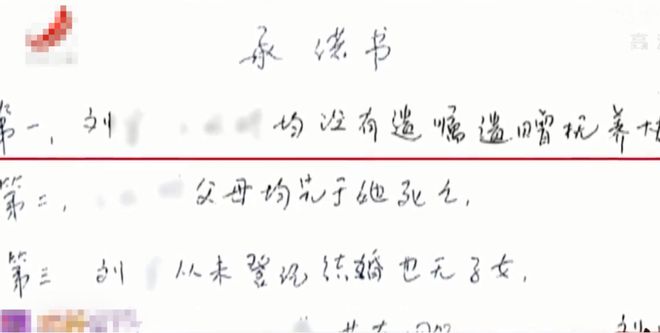 承诺书
第一,刘 均没有遗嘱遗赠抚养
第二, 父母均先于她死亡,
第三 刘 从未登记结婚也无子女,